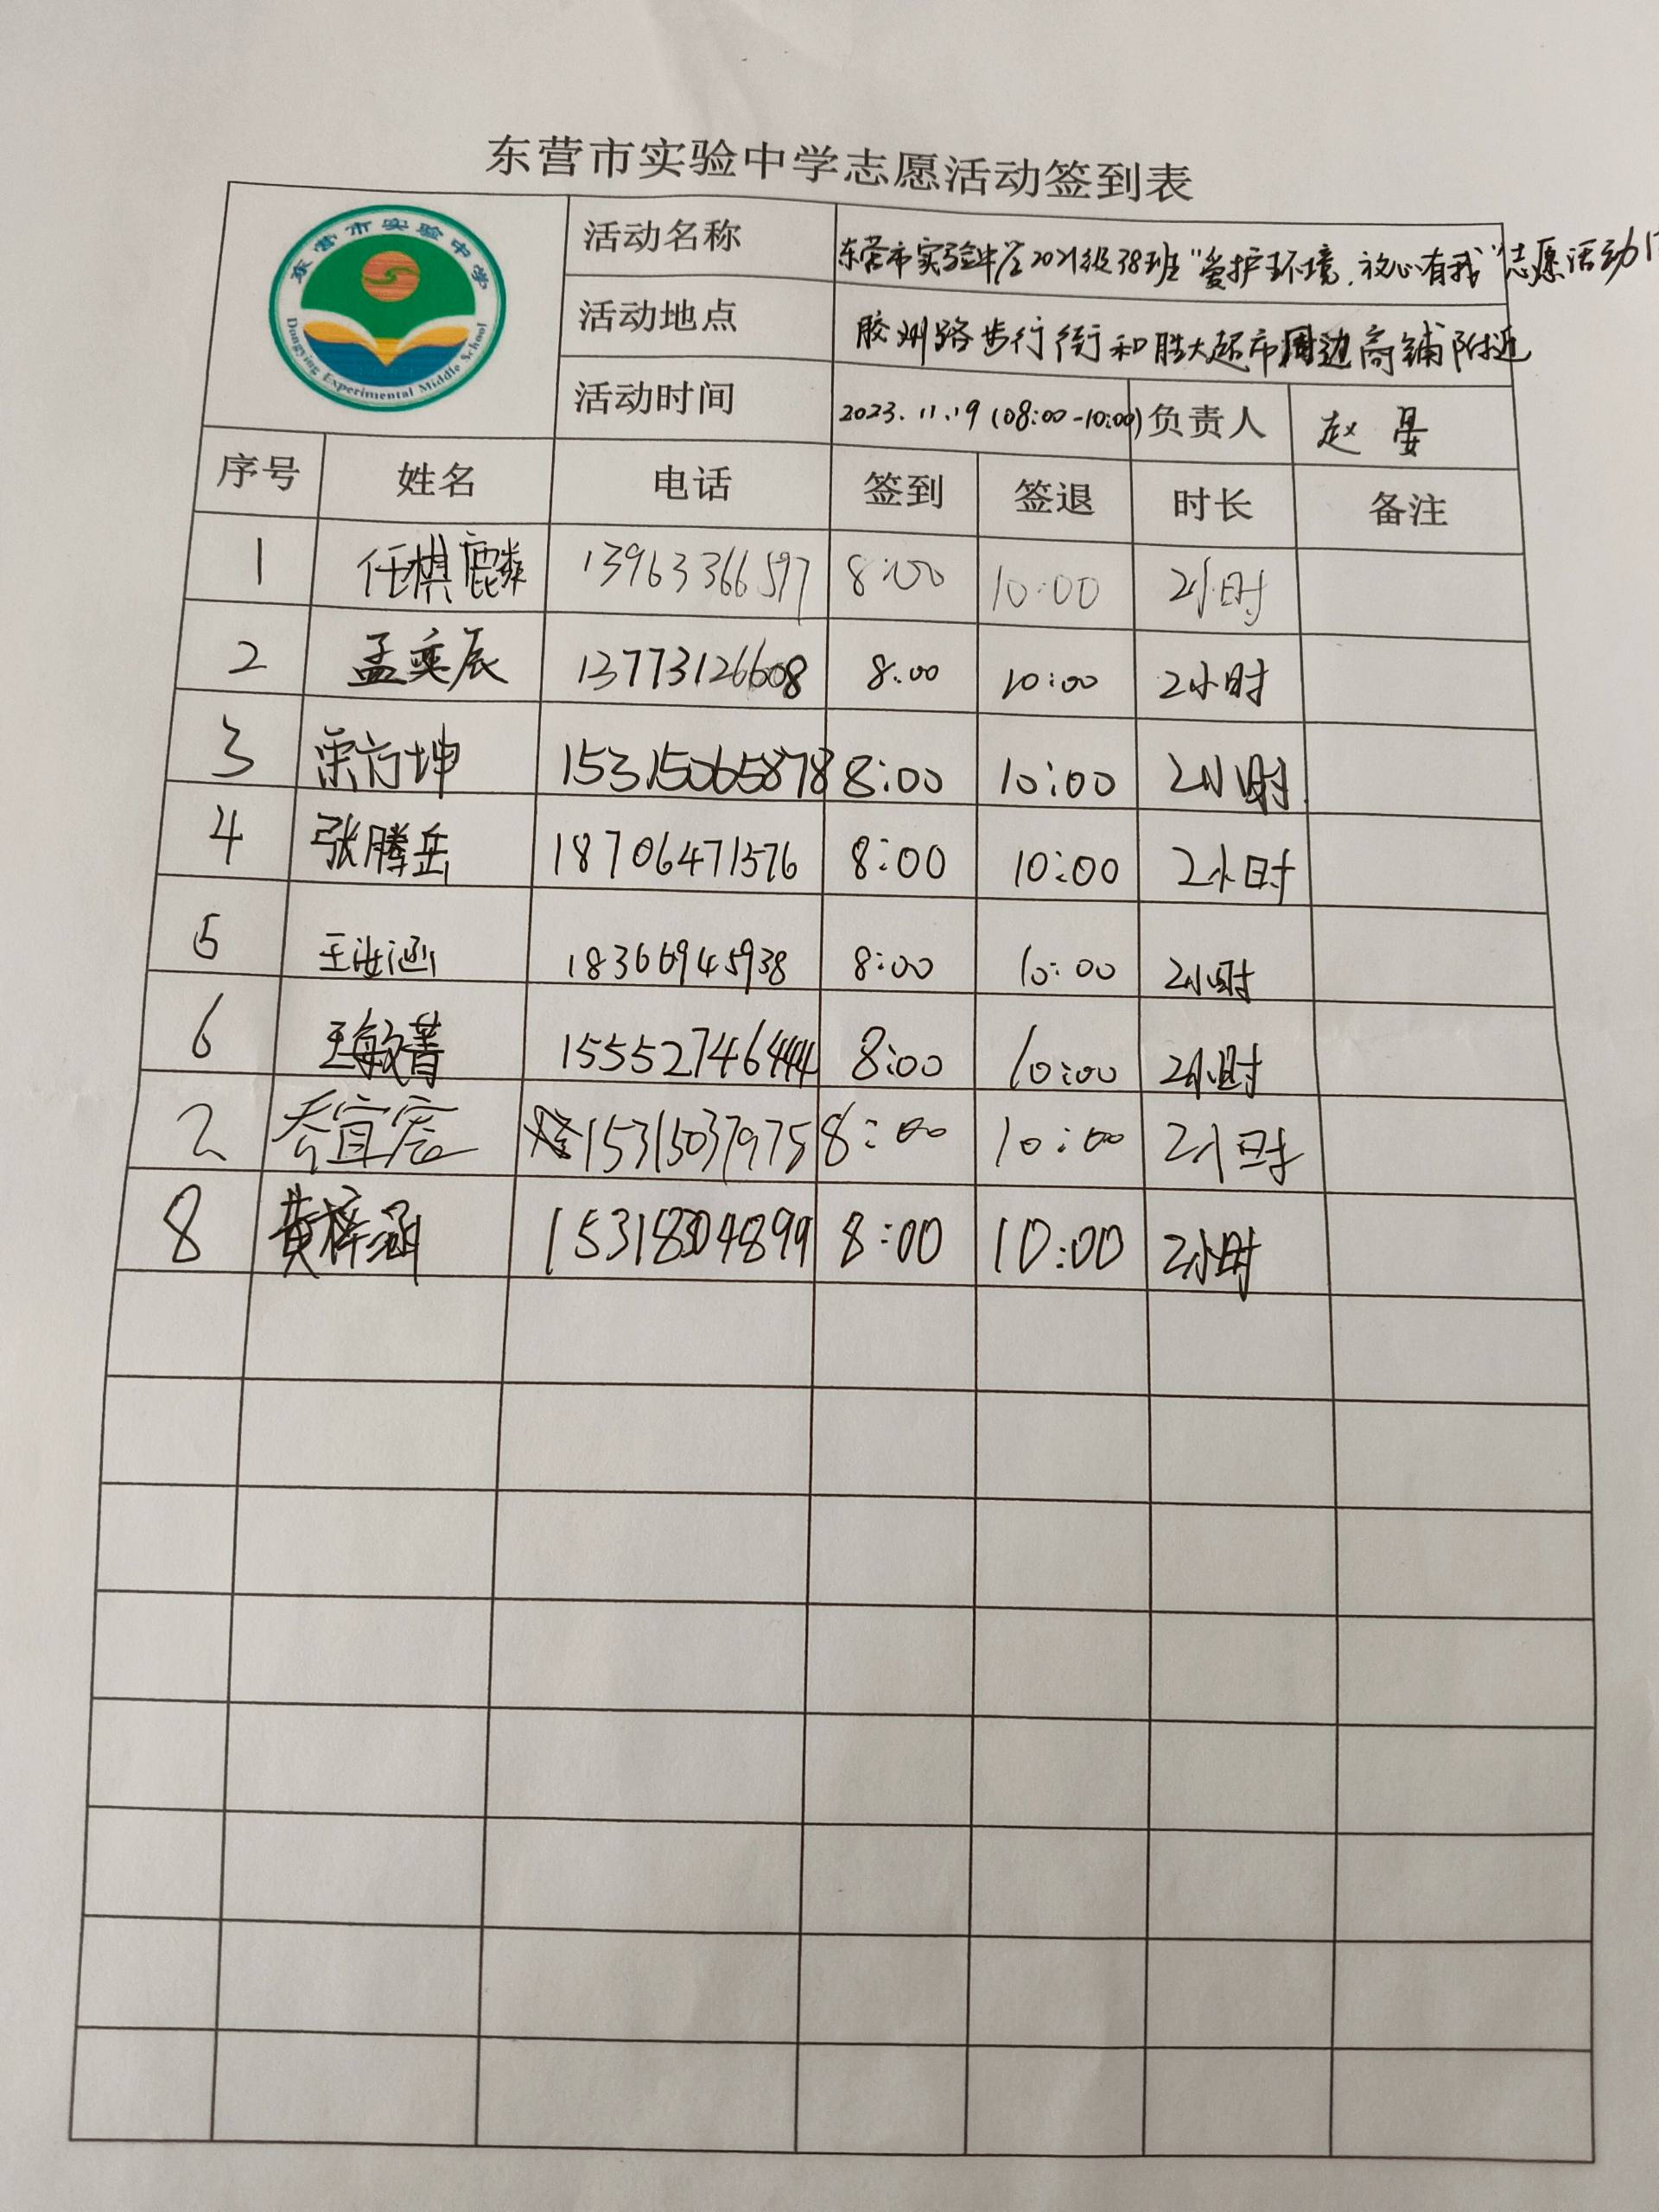 东营市实验中学志愿活动签到表
东营市实验中学
Dongying Experimental Middle School
活动名称 东营市实验中学2021级38班"爱护环境,放心有我"志愿活动
活动地点 胶州路步行街和胜大超市周边商铺附近
活动时间 2023.11.19 (08:00-10:00) 负责人 赵晏
序号 姓名 电话 签到 签退 时长 备注
1 任棋麟 13963366597 8:00 10:00 2小时
2 孟奕辰 13773126608 8:00 10:00 2小时
3 荣方坤 15315065878 8:00 10:00 2小时
4 张腾岳 18706471576 8:00 10:00 2小时
5 王汝涵 18366945938 8:00 10:00 2小时
6 王敏菁 15552746444 8:00 10:00 2小时
2 乔宜宸 15315037975 8:00 10:00 2小时
8 黄梓涵 15318304899 8:00 10:00 2小时